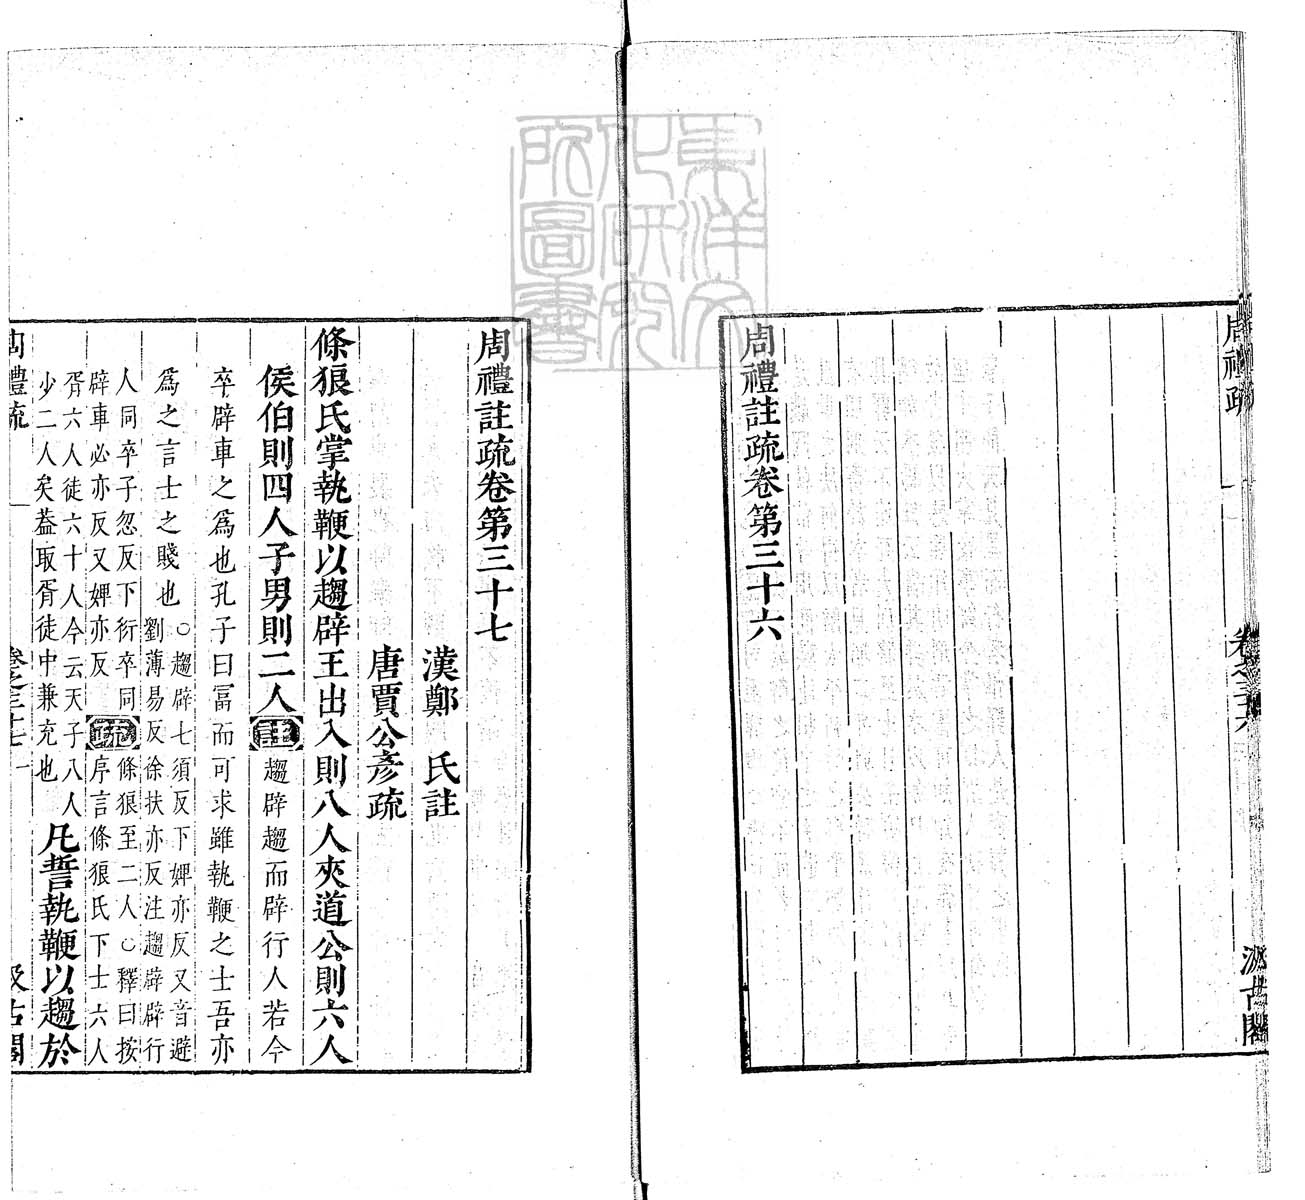 周禮疏
卷之三十六
汲古閣
周禮註疏卷第三十六
東洋文
化研究
所圖書
周禮註疏卷第三十七
漢鄭　氏註
唐賈公彥疏
條狼氏掌執鞭以趨辟王出入則八人夾道公則六人
侯伯則四人子男則二人註趨辟趨而辟行人若今
卒辟車之爲也孔子曰富而可求雖執鞭之士吾亦
爲之言士之賤也○趨辟七須反下婢亦反又音避
劉薄易反徐扶亦反注趨辟辟行
人同卒子忽反下衍卒同
辟車必亦反又婢亦反疏條狼至二人○釋曰按
序言條狼氏下士六人
胥六人徒六十人今云天子八人
少二人矣葢取胥徒中兼充也凡誓執鞭以趨於
周禮疏
卷之三十七　一
汲古閣